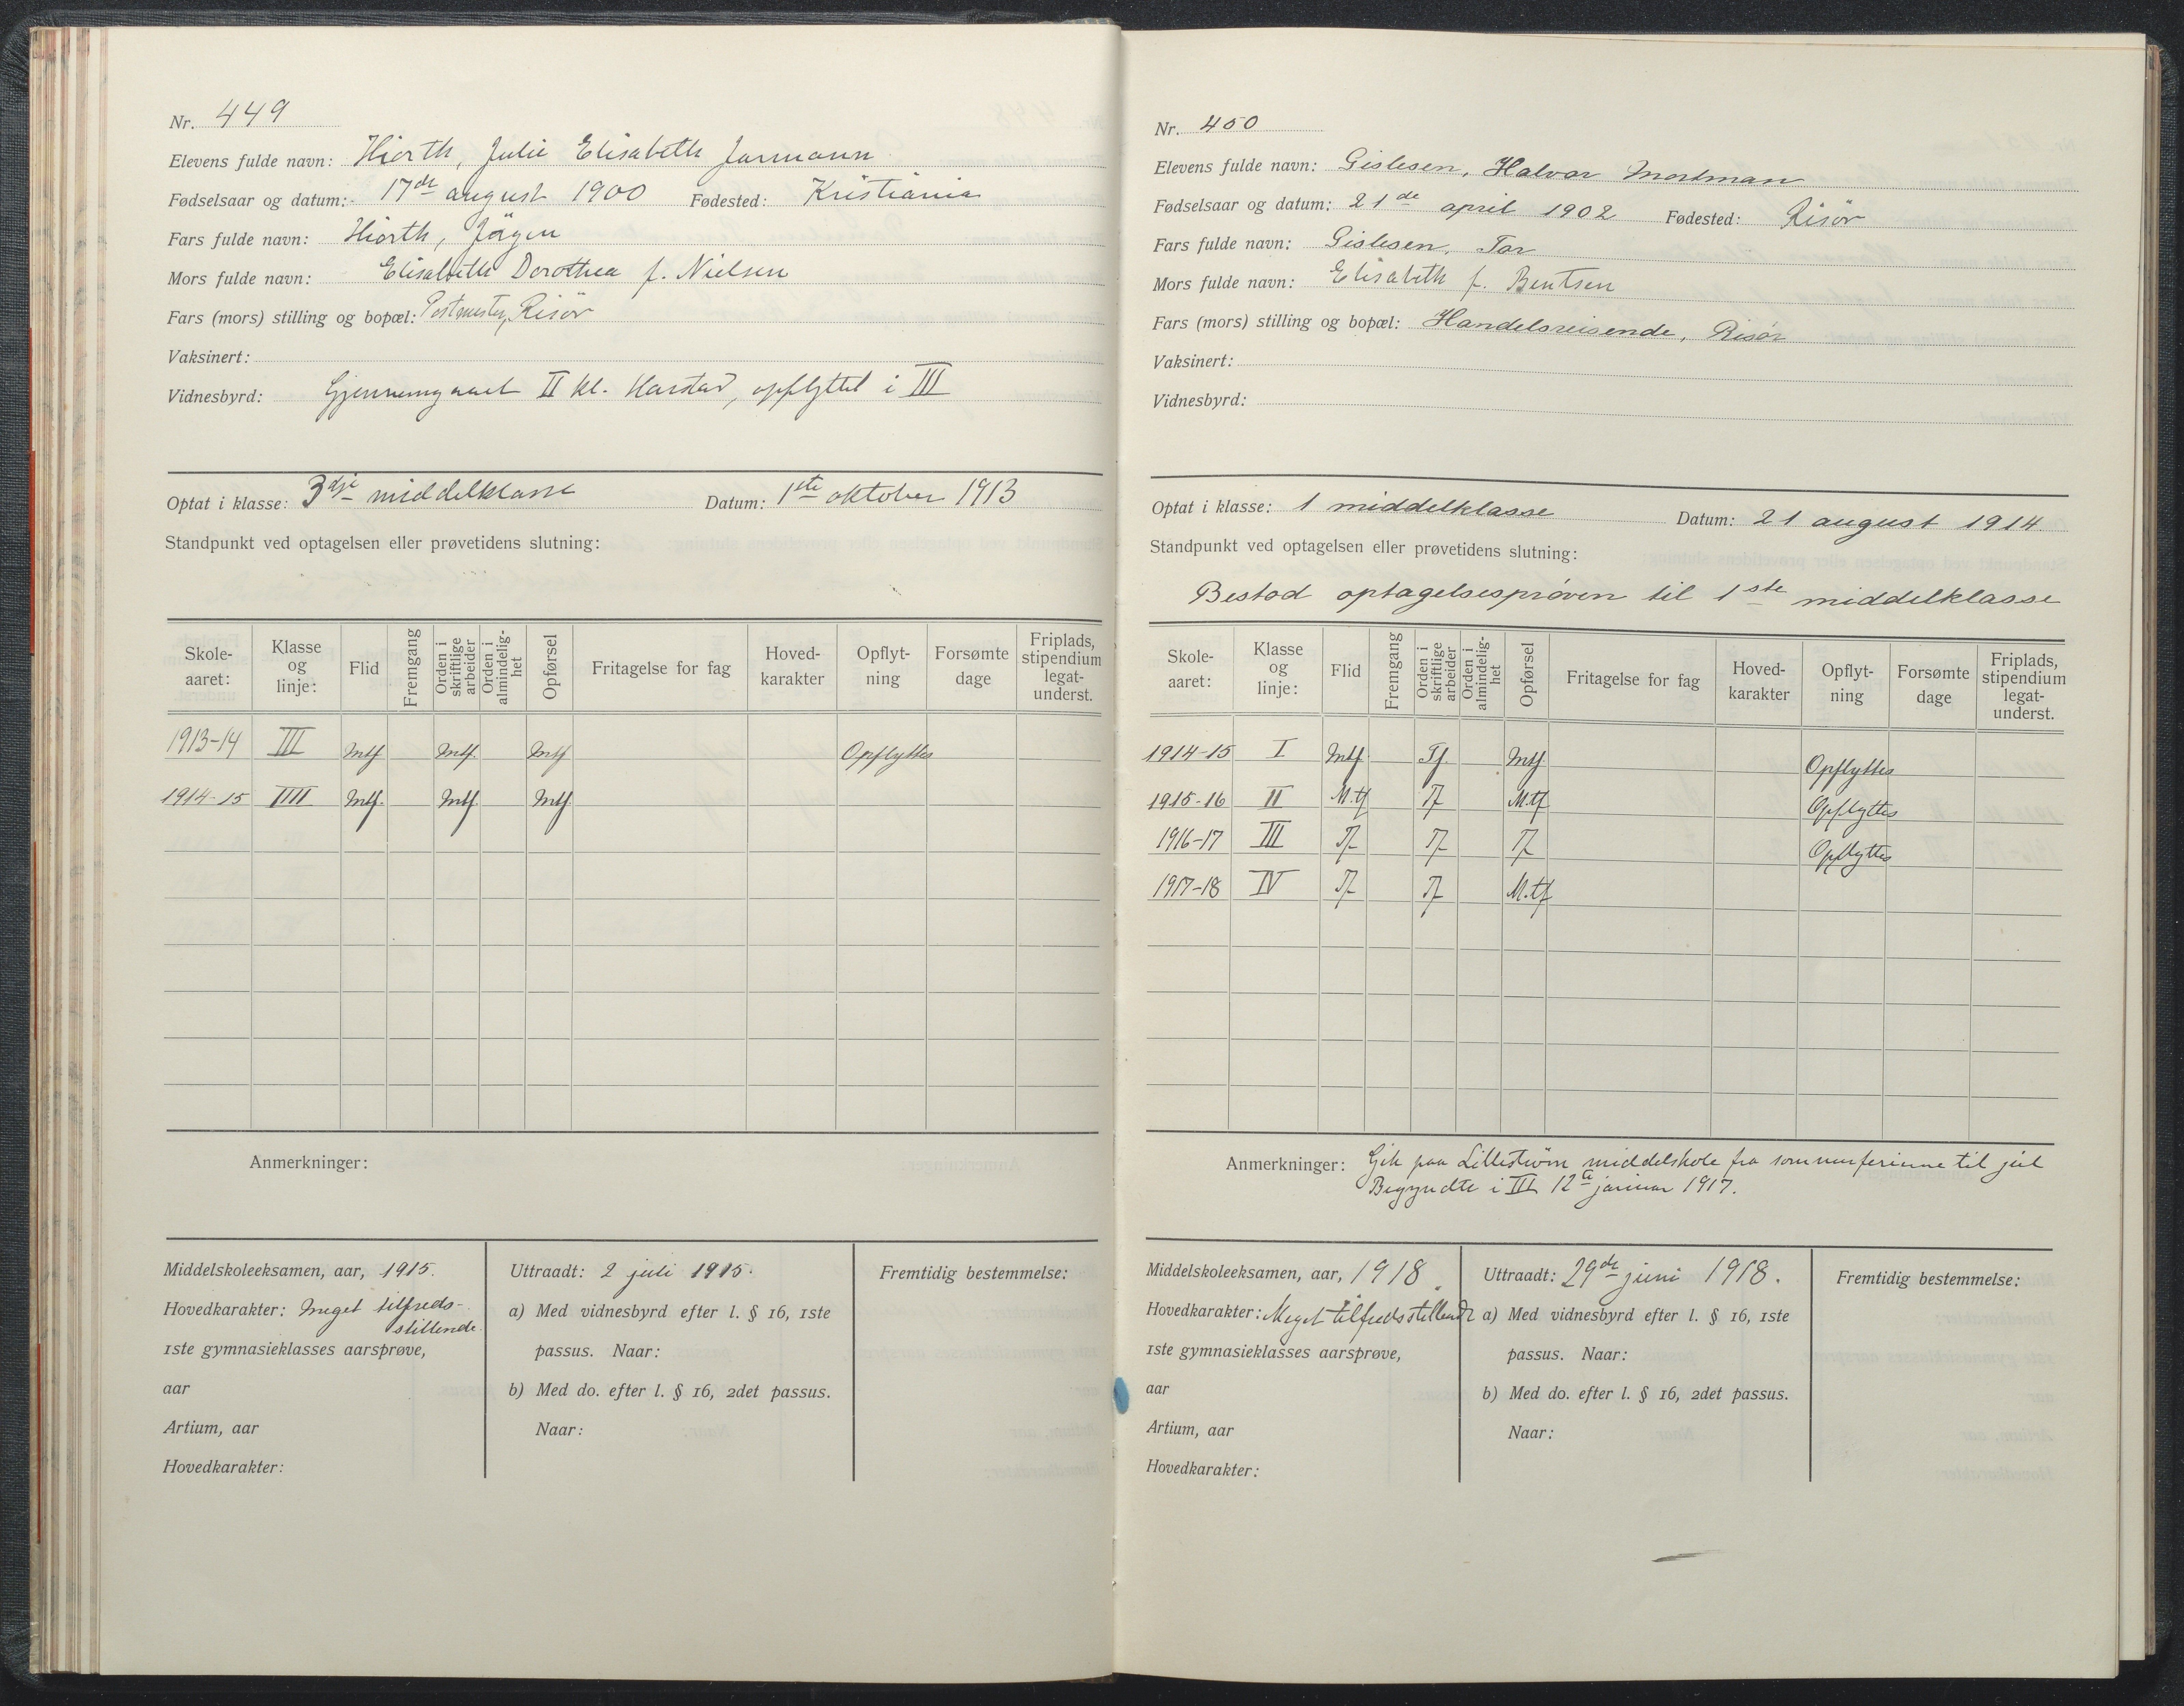 Nr. 449
Elevens fulde navn: Hiorth, Julie Elisabeth Jarmann
Fødselsaar og datum: 17de august 1900 Fødested: Kristiania
Fars fulde navn: Hiorth, Jörgen
Mors fulde navn: Elisabeth Dorothea f. Nielsen
Fars (mors) stilling og bopæl: Postmester, Risör
Vaksinert:
Vidnesbyrd: Gjennemgaaet II kl. Harstad, opflyttet i III
Optat i klasse: 3dje middelklasse Datum: 1ste oktober 1913
Standpunkt ved optagelsen eller prøvetidens slutning:
Skole-aaret: Klasse og linje: Flid Fremgang Orden i skriftlige arbeider Orden i almindelig-het Opførsel Fritagelse for fag Hoved-karakter Opflyt-ning Forsømte dage Friplads, stipendium legat-underst.
1913-14 III Mtf Mtf. Mtf Opflyttes
1914-15 IIII Mtf. Mtf. Mtf
Anmerkninger:
Middelskoleeksamen, aar, 1915.
Hovedkarakter: Meget tilfreds-
stillende.
1ste gymnasieklasses aarsprøve,
aar
Artium, aar
Hovedkarakter:
Uttraadt: 2 juli 1915.
a) Med vidnesbyrd efter l. § 16, 1ste
passus. Naar:
b) Med do. efter l. § 16, 2det passus.
Naar:
Fremtidig bestemmelse:
Nr. 450
Elevens fulde navn: Gislesen, Halvor Mortman
Fødselsaar og datum: 21de april 1902 Fødested: Risör
Fars fulde navn: Gislesen, Tor
Mors fulde navn: Elisabeth f. Bentsen
Fars (mors) stilling og bopæl: Handelsreisende, Risør
Vaksinert:
Vidnesbyrd:
Optat i klasse: 1 middelklasse Datum: 21 august 1914.
Standpunkt ved optagelsen eller prøvetidens slutning:
Bestod optagelsesprøven til 1ste middelklasse
Skole-aaret: Klasse og linje: Flid Fremgang Orden i skriftlige arbeider Orden i almindelig-het Opførsel Fritagelse for fag Hoved-karakter Opflyt-ning Forsømte dage Friplads, stipendium legat-underst.
1914-15 I Mtf. Tf. Mtf. Opflyttes
1915-16 II M.tf Tf M.tf Opflyttes
1916-17 III Tf Tf Tf Opflyttes
1917-18 IV Tf Tf M.tf
Anmerkninger: Gik paa Lilleström middelskole fra sommerferierne til jul
Begyndte i III 12te januar 1917.
Middelskoleeksamen, aar, 1918.
Hovedkarakter: Meget tilfredsstillende
1ste gymnasieklasses aarsprøve,
aar
Artium, aar
Hovedkarakter:
Uttraadt: 29de juni 1918.
a) Med vidnesbyrd efter l. § 16, 1ste
passus. Naar:
b) Med do. efter l. § 16, 2det passus.
Naar:
Fremtidig bestemmelse: